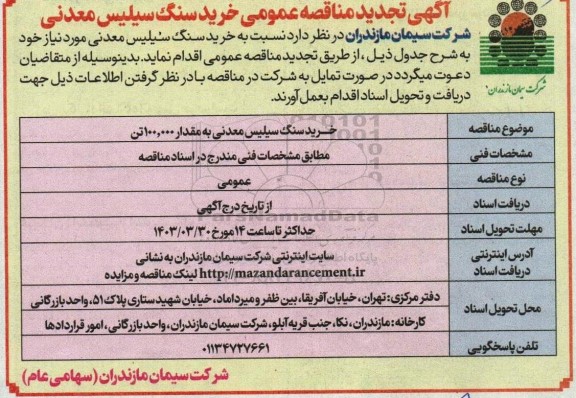 آگهی تجدید مناقصه عمومی خرید سنگ سیلیس معدنی
شرکت سیمان مازندران در نظر دارد نسبت به خرید سنگ سیلیس معدنی مورد نیاز خود
به شرح جدول ذیل، از طریق تجدید مناقصه عمومی اقدام نماید. بدینوسیله از متقاضیان
دعوت میگردد در صورت تمایل به شرکت در مناقصه با در نظر گرفتن اطلاعات ذیل جهت
دریافت و تحویل اسناد اقدام بعمل آورند.
شرکت سیمان مازندران
موضوع مناقصه خرید سنگ سیلیس معدنی به مقدار ۱۰۰,۰۰۰ تن
مشخصات فنی مطابق مشخصات فنی مندرج در اسناد مناقصه
نوع مناقصه عمومی
دریافت اسناد از تاریخ درج آگهی
مهلت تحویل اسناد حداکثر تا ساعت ۱۴ مورخ ۱۴۰۳/۰۳/۳۰
آدرس اینترنتی سایت اینترنتی شرکت سیمان مازندران به نشانی
دریافت اسناد http://mazandarancement.ir لینک مناقصه و مزایده
محل تحویل اسناد دفتر مرکزی: تهران، خیابان آفریقا، بین ظفر و میرداماد، خیابان شهید ستاری پلاک ۵۱، واحد بازرگانی
کارخانه: مازندران، نکا، جنب قریه آبلو، شرکت سیمان مازندران، واحد بازرگانی، امور قراردادها
تلفن پاسخگویی ۰۱۱۳۴۷۲۷۶۶۱
شرکت سیمان مازندران (سهامی عام)
ParsNamadData